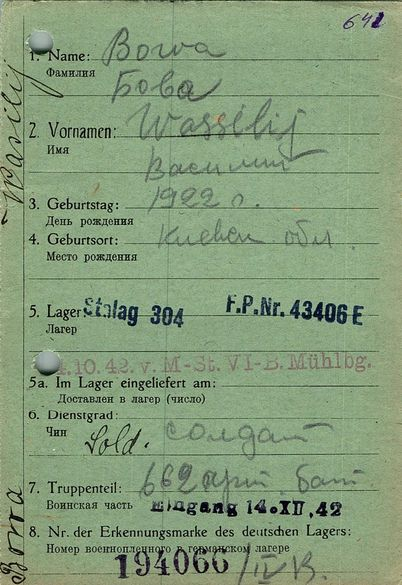 641
1. Name: Bowa
Фамилия
Бова
2. Vornamen: Wassilij
Имя
Василий
3. Geburtstag: 1922 г.
День рождения
4. Geburtsort: Киевск обл.
Место рождения
5. Lager Stalag 304 F.P.Nr. 43406 E
Лагерь
4.10.42. v. M-St. VI-B. Mühlbg.
5a. Im Lager eingeliefert am:
Доставлен в лагерь (число)
6. Dienstgrad:
Чин
Sold. солдат
7. Truppenteil: 662 арт. бат
Воинская часть Eingang 14.XII.42
8. Nr. der Erkennungsmarke des deutschen Lagers:
Номер военнопленного в германском лагере
194066 / IV B.
Wasilij
Bowa